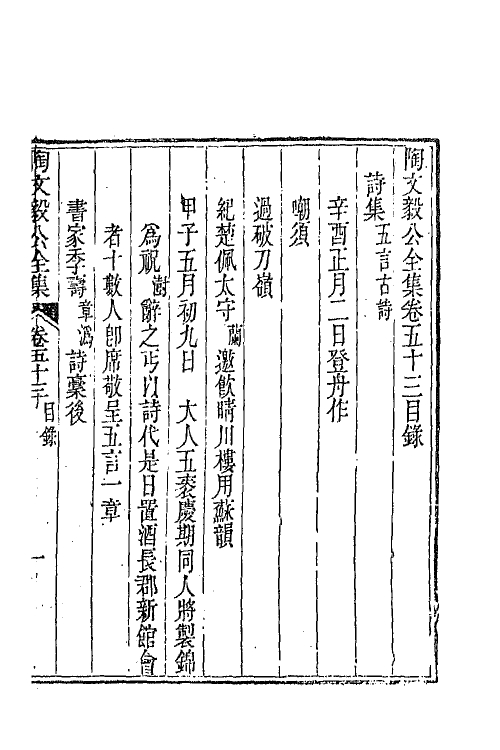 陶文毅公全集卷五十三目錄
詩集五言古詩
辛酉正月二日登舟作
嘲須
過破刀嶺
紀楚佩太守蘭邀飲晴川樓用蘇韻
甲子五月初九日　大人五袠慶期同人將製錦
為祝澍辭之丐以詩代是日置酒長郡新館會
者十數人即席敬呈五言一章
書家季壽章溈詩稾後
陶文毅公全集　卷五十三　目錄　一